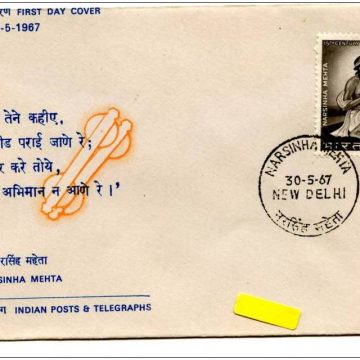 FIRST DAY COVER
-5-1967
तेने कहीए,
पराई जाणे रे;
करे तोये,
अभिमान न आणे रे।'
नरसिंह महेता
SINHA MEHTA
INDIAN POSTS & TELEGRAPHS
15TH CENTURY
NARSINHA MEHTA
NARSINHA MEHTA
30-5-67
NEW DELHI
नरसिंह महेता